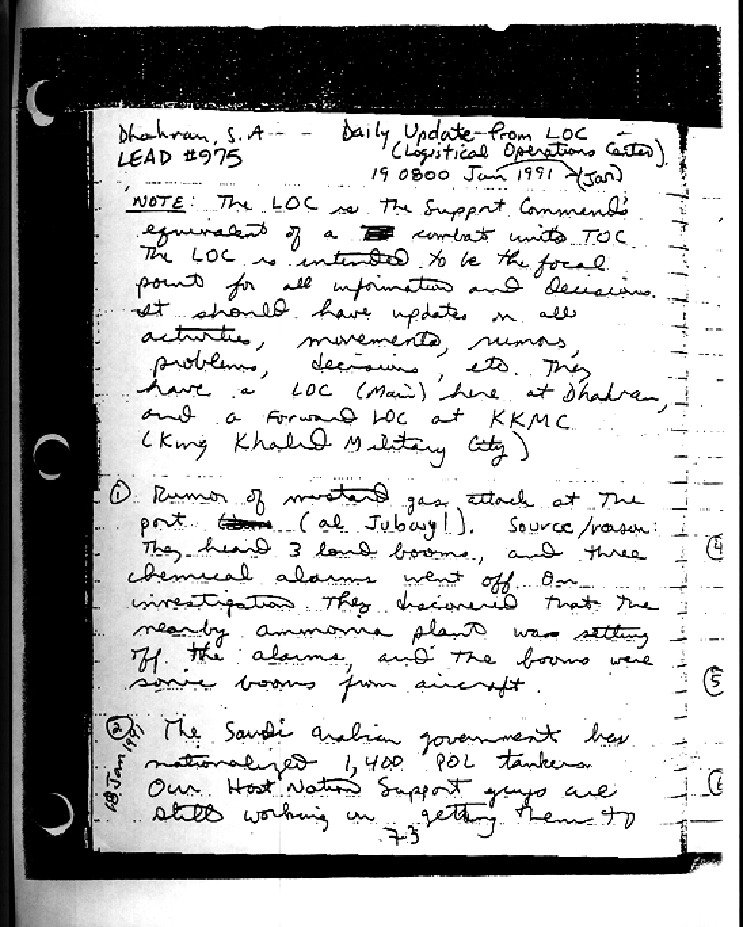 Dhahran, S.A - - Daily Update from LOC -
LEAD #975 (Logistical Operations Center)
19 0800 Jan 1991 (Jan)
NOTE: The LOC is the Support Command's
equivalent of a combat units TOC
The LOC is intended to be the focal
point for all information and decisions.
It should have updates on all
activities, movements, rumors,
problems, decisions, etc. They
have a LOC (Main) here at Dhahran,
and a Forward LOC at KKMC
(King Khalid Military City)
① Rumor of mustard gas attack at the
port (al Jubayl). Source/reason:
They heard 3 loud booms, and three
chemical alarms went off. On
investigation they discovered that the
nearby ammonia plant was setting
off the alarms, and the booms were
sonic booms from aircraft.
② The Saudi Arabian government has
18 Jan 1991
nationalized 1,400 POL tankers
Our Host Nation Support guys are
still working on getting them to
73
④
⑤
⑥